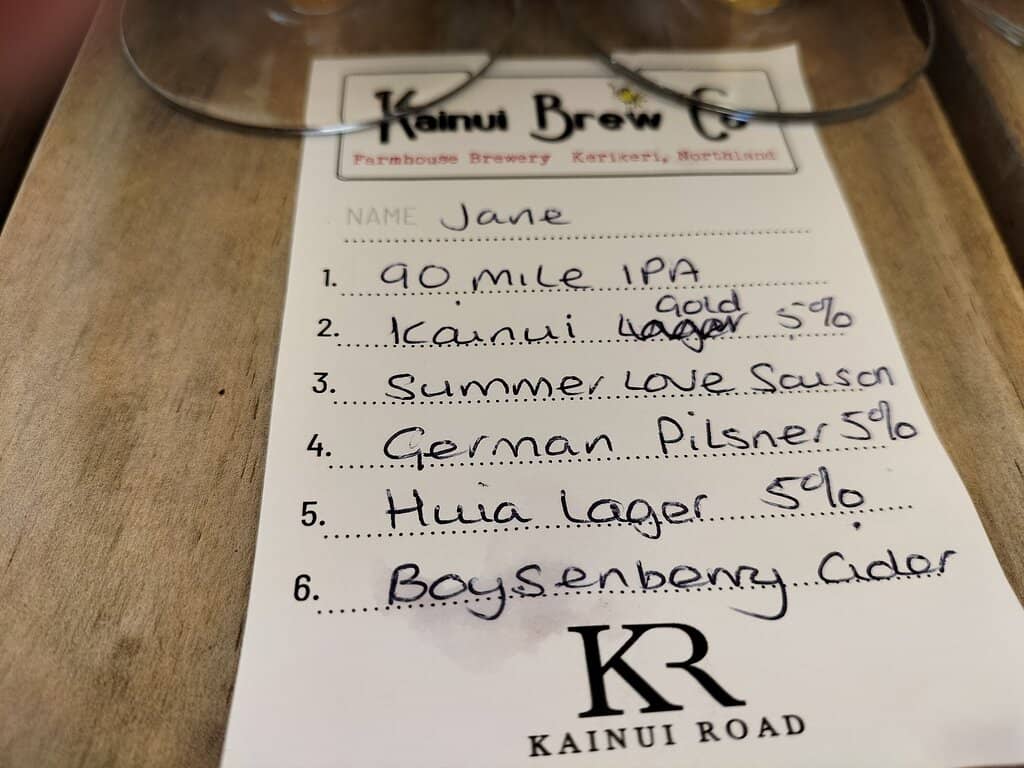 Kainui Brew Co
Farmhouse Brewery Kerikeri, Northland
NAME Jane
1. 90 mile IPA
Gold
2. Kainui Lager 5%
3. Summer Love Saison
4. German Pilsner 5%
5. Huia Lager 5%
6. Boysenberry Cider
KR
KAINUI ROAD